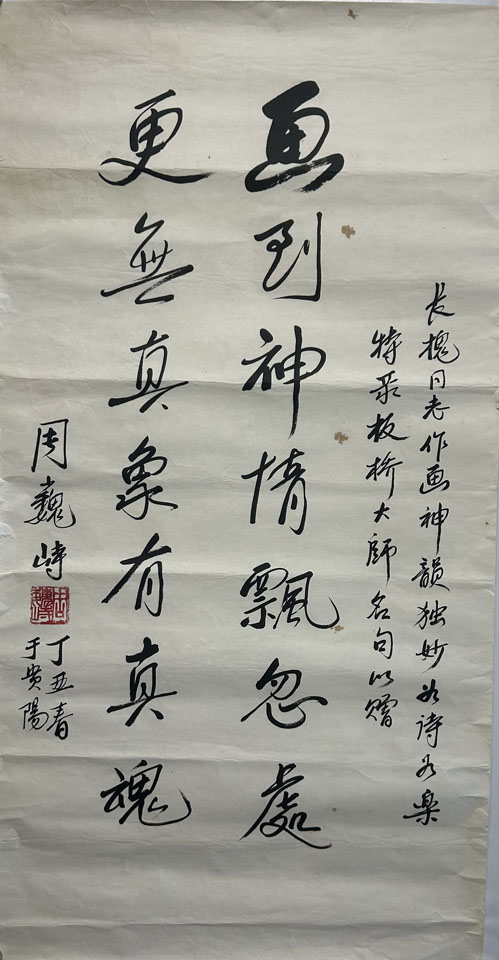 长槐同志作画神韵独妙如诗如樂
特录板桥大師名句以赠
画到神情飄忽處
更無真象有真魂
周巍峙
丁丑春
于贵陽